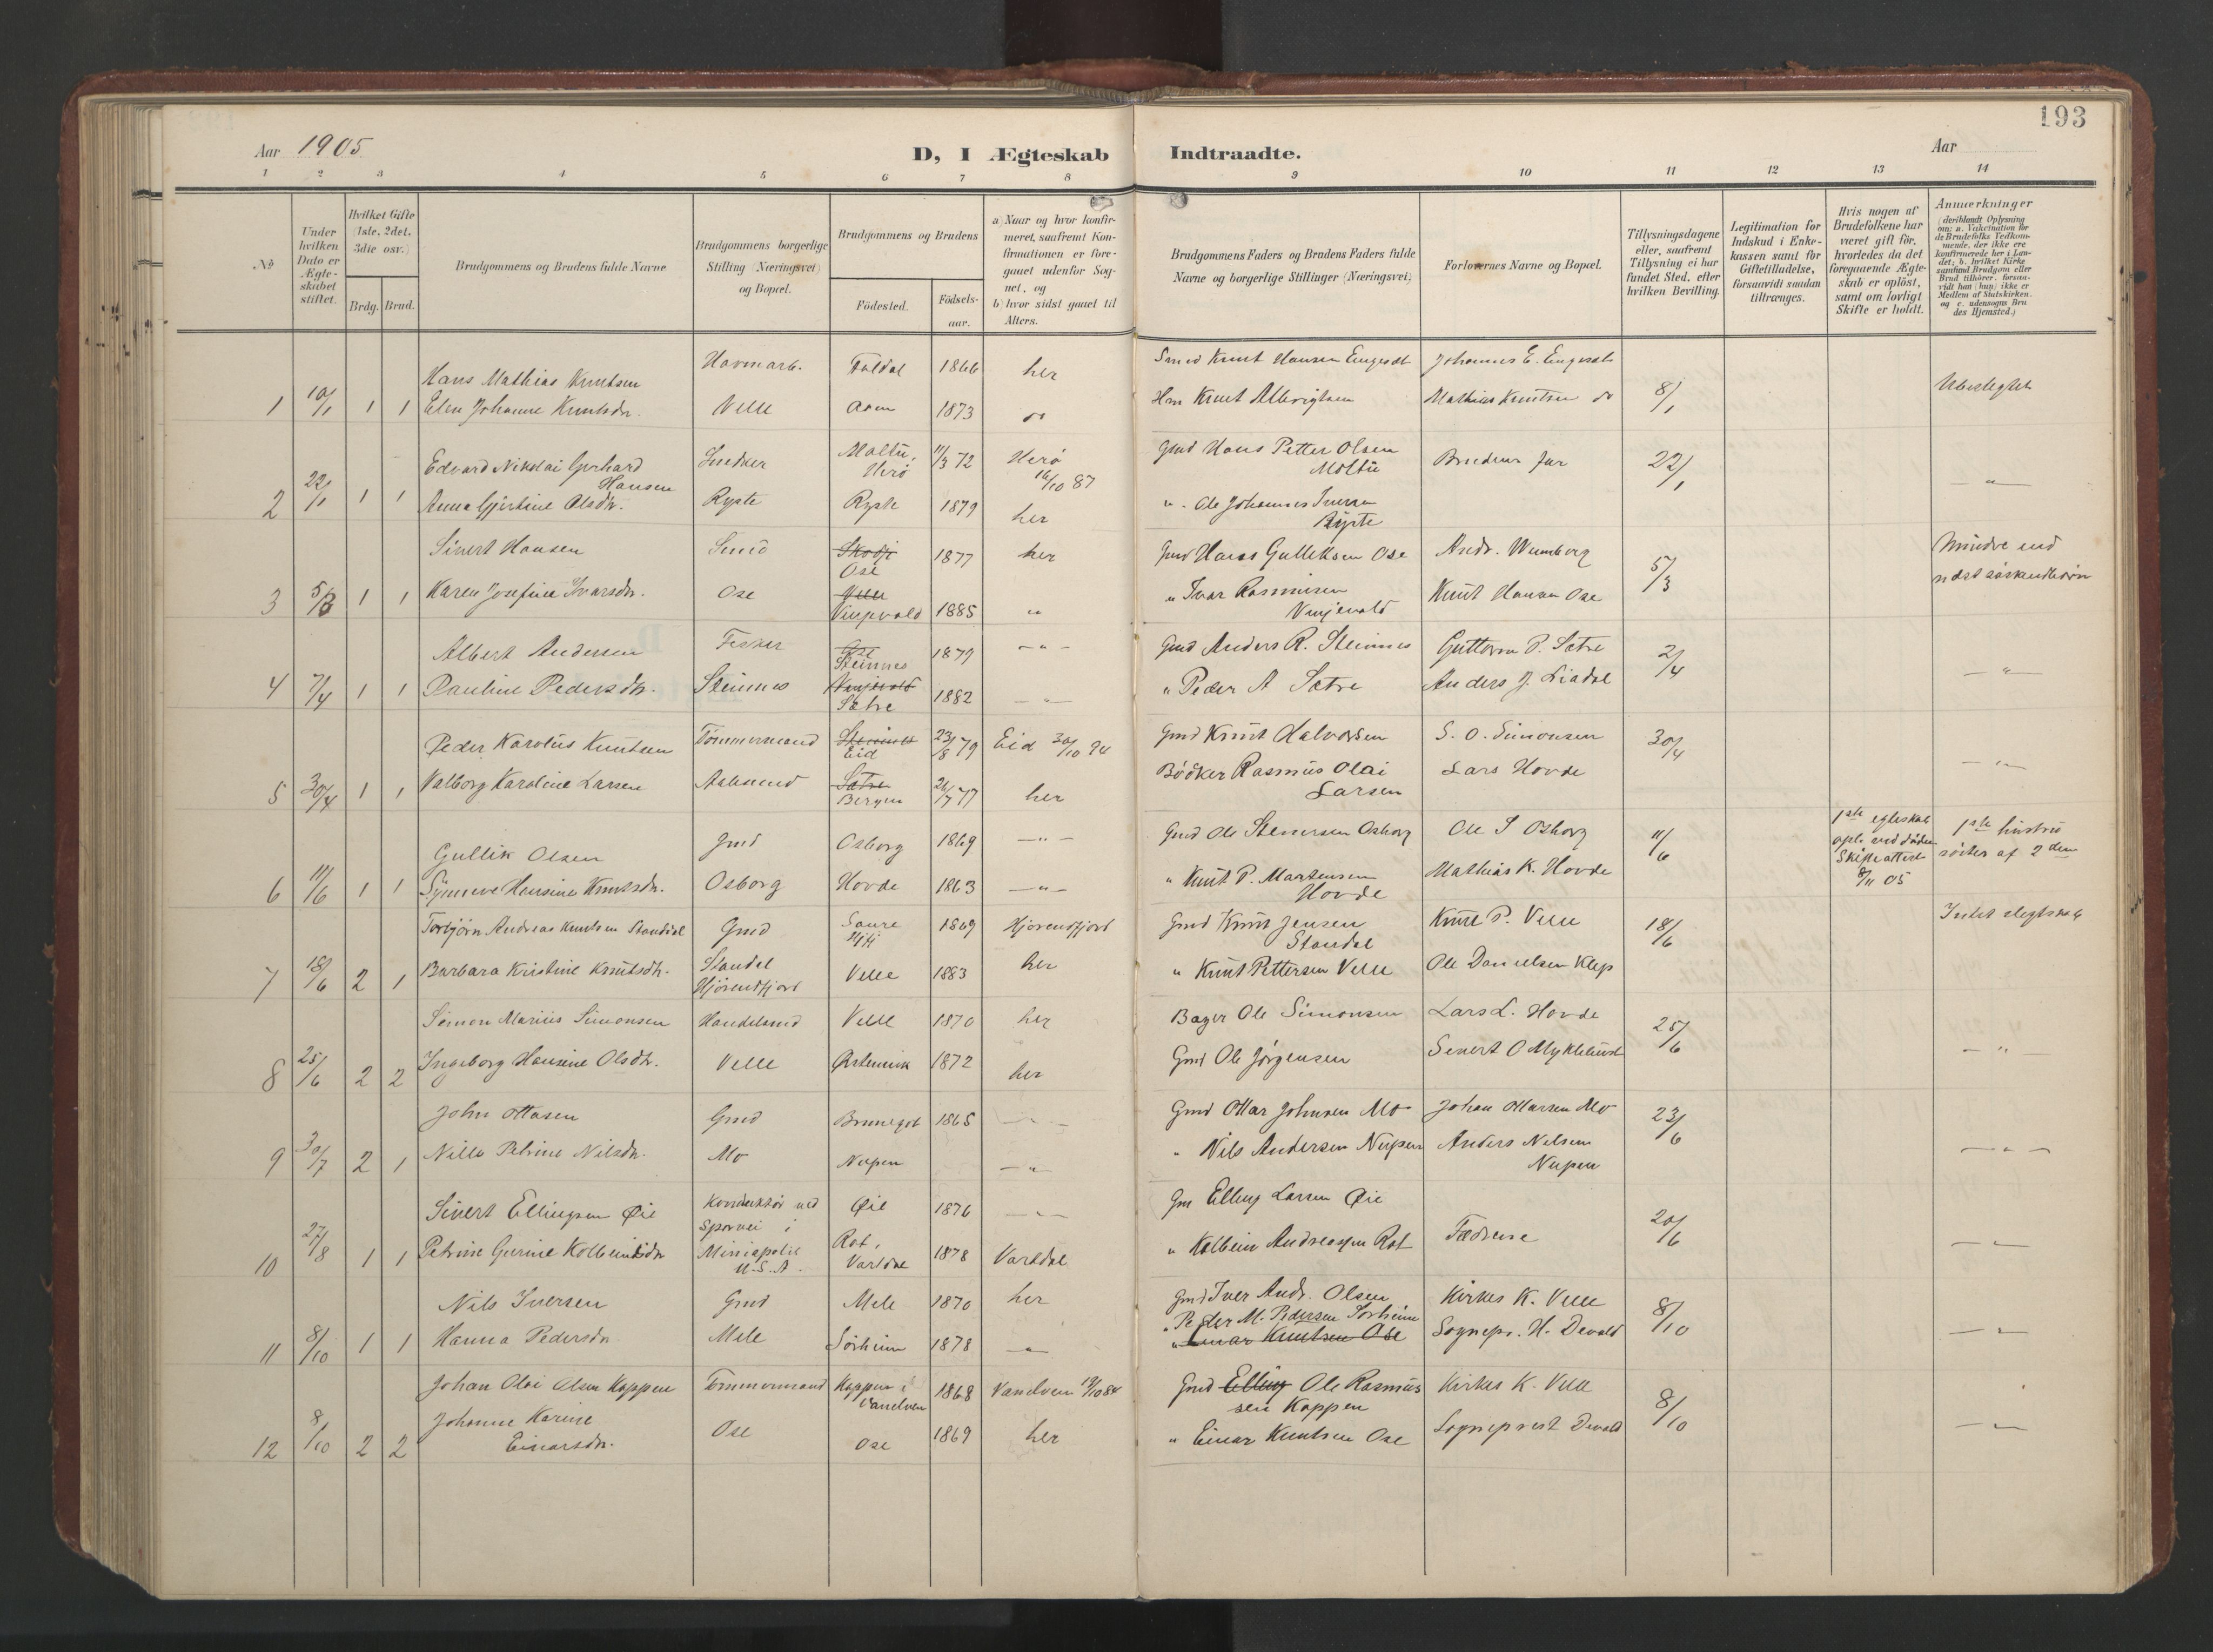 193
Aar 1905
D, I Ægteskab Indtraadte.
Aar
1 2 3 4 5 6 7 8 9 10 11 12 13 14
№
Under hvilken Dato er Ægteskabet stiftet.
Hvilket Gifte (1ste, 2det, 3die osv.)
Brdg. Brud.
Brudgommens og Brudens fulde Navne
Brudgommens borgerlige Stilling (Næringsvei) og Bopæl.
Brudgommens og Brudens
Födested.
Födsels-aar.
a) Naar og hvor konfirmeret, saafremt Konfirmationen er foregaaet udenför Sognet, og
b) hvor sidst gaaet til Alters.
Brudgommens Faders og Brudens Faders fulde Navne og borgerlige Stillinger (Næringsvei)
Forlovernes Navne og Bopæl.
Tillysningsdagene eller, saafremt Tillysning ei har fundet Sted, efter hvilken Bevilling.
Legitimation for Indskud i Enkekassen samt for Giftetilladelse, forsaavidt saadan tiltrænges.
Hvis nogen af Brudefolkene har været gift för, hvorledes da det foregaaende Ægteskab er oplöst, samt om lovligt Skifte er holdt.
Anmærkninger
(deriblandt Oplysning om: a. Vakcination for de Brudefolks Vedkommende, der ikke ere konfirmerede her i Landet; b. hvilket Kirkesamfund Brudgom eller Brud tilhörer, forsaavidt han (hun) ikke er Medlem af Statskirken, og c. udensogns Brudes Hjemsted.)
Hans Mathias Knutsen Havnarb. 1866 her Smed Knut Hansen Engeset Johannes E. Engeset
1 10/1 1 1 Elen Johanne Knutsdr. Velle 1873 do Knut Mathias Knutsen do 8/1
Edvard Nikolai Gerhard Hansen Snedker Moltu, Herö 11/3 72 Herö 16/10 87 Gmd Hans Petter Olsen Moltu Brudens far 22/1
2 22/1 1 1 Anna Gjertine Olsdtr. Ryste Ryste 1879 her " Ole Johannes Iversen Ryste — " —
Sivert Hansen Smed Skodje Ose 1877 her Gmd Hans Gulleksen Ose Andr. Wumberg 5/3 Mindre end næst söskendebörn
3 5/3 1 1 Karen Josefine Ivarsdr. Ose Velle Vinjevold 1885 " " Ivar Rasmusen Vinjevold Knut Hansen Ose
Albert Andersen Fisker Ose Steinnes 1879 — " — Gmd Anders R. Steinnes Guttorm P. Sætre 2/4
4 7/4 1 1 Pauline Pedersdtr. Steinnes Vinjevold Sætre 1882 — " — " Peder A Sætre Anders J. Liadal — " —
Peder Karolus Knutsen Tömmermand Steinnes Eid 23/8 79 Eid 30/10 94 Gmd Knut Halvorsen S. O. Simonsen 30/4
5 30/4 1 1 Valborg Karoline Larsen Aalesund Sætre Bergen 26/7 77 her Bödker Rasmus Olai Larsen Lars Hovde — " —
Gullik Olsen Gmd Osborg 1869 — " — Gmd Ole Stenersen Osborg Ole S Osborg 11/6 1ste egteskab opl. ved döden Skifteattest 8/11 05 1ste hustru söster af 2den
6 11/6 1 1 Synneve Hansine Knutsdr. Osborg Hovde 1863 — " — " Knut P. Martensen Hovde Mathias K. Hovde
Torbjörn Andreas Knutsen Standal Gmd Saure Hjfj 1869 Hjörendfjord Gmd Knut Jensen Standal Knut P. Velle 18/6
7 18/6 2 1 Barbara Kristine Knutsdtr. Standal Hjörendfjord Velle 1883 her " Knut Pettersen Velle Ole Danielsen Klep
Simon Marius Simonsen Handelsmd Velle 1870 her Bager Ole Simonsen Lars L. Hovde 25/6
8 25/6 2 2 Ingeborg Hansine Olsdtr. Velle Ørstenvik 1872 her Gmd Ole Jörgensen Severt O Myklebust — " —
John Ottasen Gmd 1865 — " — Gmd Ottar Johnsen Mo Johan Ottarsen Mo 23/6
9 30/7 2 1 Nille Petrine Nilsdr. Mo Nupen — " — " Nils Andersen Nupen Anders Nilsen Nupen — " —
Sivert Ellingsen Øie Konduktör ved Sporvei i Øie 1876 — " — Gm Elling Larsen Øie 20/6
10 27/8 1 1 Petrine Gurine Kolbeinsdr Miniapolis U.S.A. Rot, Vartdal 1878 Vartdal " Kolbein Andreassen Rot Fædrene — " —
Nils Iversen Gmd Mele 1870 her Gmd Iver Andr. Olsen Kirkes K. Velle 8/10
" Peder M. Pedersen Sörheim
11 8/10 1 1 Hanna Pedersdr Mele Sörheim 1878 — " — " Einar Knutsen Ose Sognepr. H. Devold — " —
Johan Olai Olsen Koppen Tömmermand Koppen i Vanelven 1868 Vanelven 19/10 84 Gmd Elling Ole Rasmussen Koppen Kirkes K. Velle 8/10
12 8/10 2 2 Johanne Karine Einarsdr. Ose Ose 1869 her " Einar Knutsen Ose Sogneprest Devold — " —